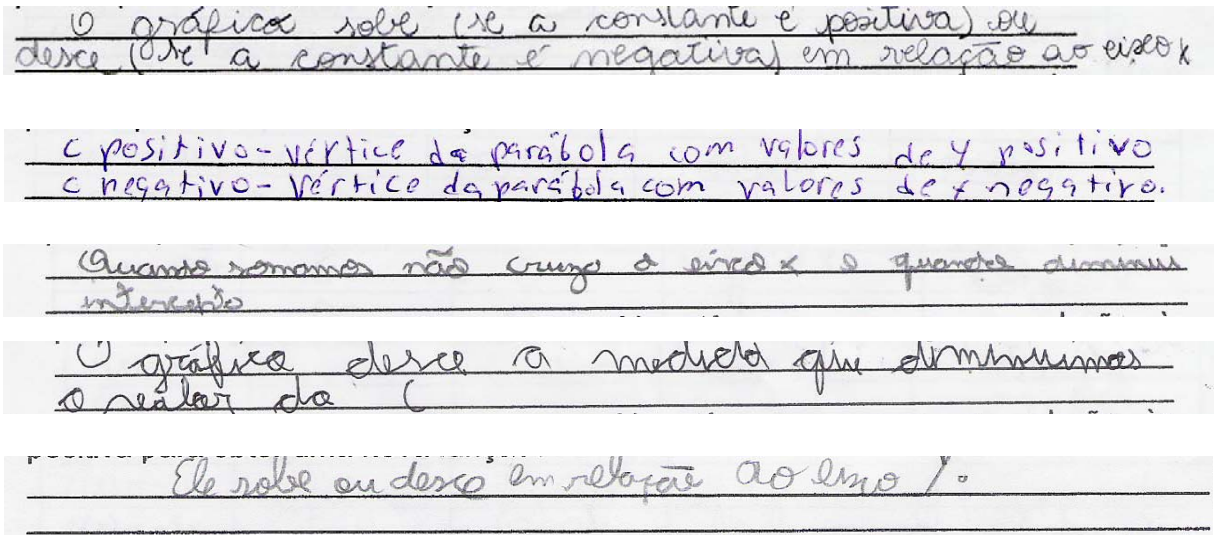 O gráfico sobe (se a constante é positiva) ou
desce (se a constante é negativa) em relação ao eixo x
c positivo - vértice da parábola com valores de y positivo
c negativo - vértice da parábola com valores de negativo.
Quando somamos não cruza o eixo x e quando diminui
intercepto
O gráfico desce a medida que diminuimos
o valor da C
Ele sobe ou desce em relação ao eixo